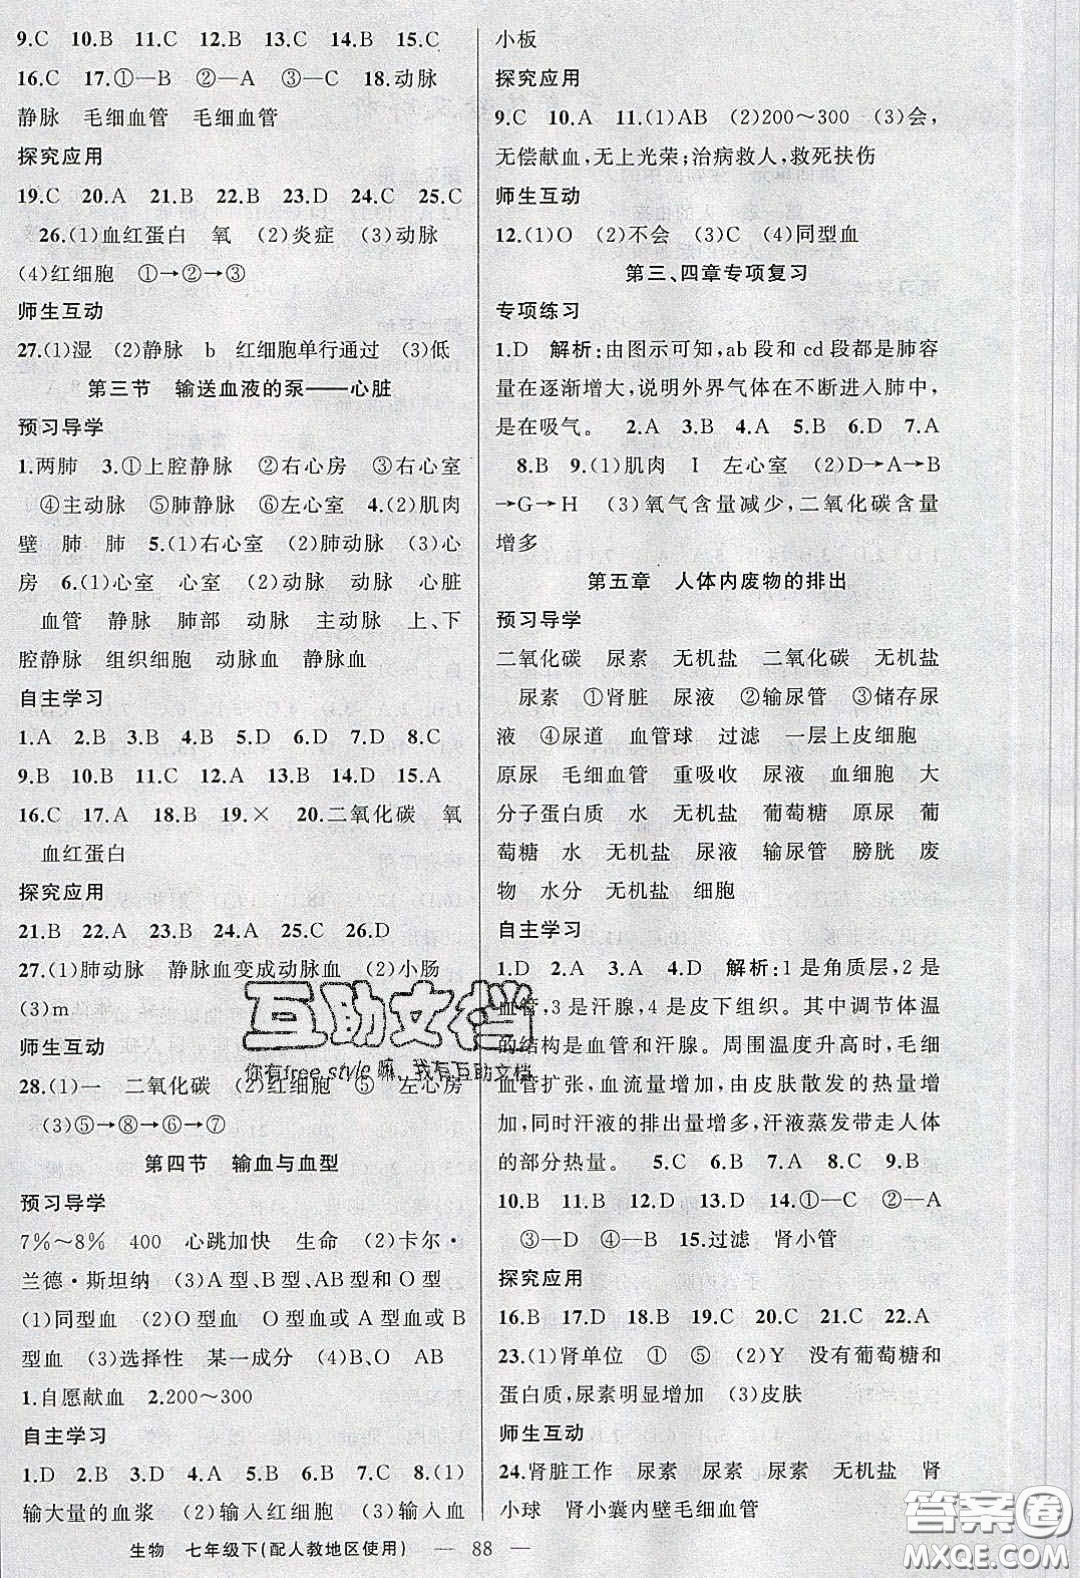 9.C 10.B 11.C 12.B 13.C 14.B 15.C
16.C 17.①—B ②—A ③—C 18.动脉
静脉 毛细血管 毛细血管
探究应用
19.C 20.A 21.B 22.B 23.D 24.C 25.C
26.(1)血红蛋白 氧 (2)炎症 (3)动脉
(4)红细胞 ①→②→③
师生互动
27.(1)湿 (2)静脉 b 红细胞单行通过 (3)低
第三节 输送血液的泵——心脏
预习导学
1.两肺 3.①上腔静脉 ②右心房 ③右心室
④主动脉 ⑤肺静脉 ⑥左心室 4.(2)肌肉
壁 肺 肺 5.(1)右心室 (2)肺动脉 (3)心
房 6.(1)心室 心室 动脉 动脉 心脏
血管 静脉 肺部 动脉 主动脉 上、下
腔静脉 组织细胞 动脉血 静脉血
自主学习
1.A 2.B 3.B 4.B 5.D 6.D 7.D 8.C
9.B 10.B 11.C 12.A 13.B 14.D 15.A
16.C 17.A 18.B 19.× 20.二氧化碳 氧
血红蛋白
探究应用
21.B 22.A 23.B 24.A 25.C 26.D
27.(1)肺动脉 静脉血变成动脉血 (2)小肠
(3)m
师生互动
28.(1)一 二氧化碳 (2)红细胞 ⑤ 左心房
(3)⑤→⑧→⑥→⑦
第四节 输血与血型
预习导学
7%～8% 400 心跳加快 生命 (2)卡尔·
兰德·斯坦纳 (3)A型、B型、AB型和O型
(1)同型血 (2)O型血 O型血或A型血或B
型血 (3)选择性 某一成分 (4)B、O AB
1.自愿献血 2.200～300
自主学习
1.D 2.B 3.D 4.A 5.B 6.B 7.C 8.(1)
输大量的血浆 (2)输入红细胞 (3)输入血
小板
探究应用
9.C 10.A 11.(1)AB (2)200～300 (3)会,
无偿献血,无上光荣;治病救人,救死扶伤
师生互动
12.(1)O (2)不会 (3)C (4)同型血
第三、四章专项复习
专项练习
1.D 解析:由图示可知,ab段和cd段都是肺容
量在逐渐增大,说明外界气体在不断进入肺中,
是在吸气。 2.A 3.A 4.A 5.B 6.D 7.A
8.B 9.(1)肌肉 I 左心室 (2)D→A→B
→G→H (3)氧气含量减少,二氧化碳含量
增多
第五章 人体内废物的排出
预习导学
二氧化碳 尿素 无机盐 二氧化碳 无机盐
尿素 ①肾脏 尿液 ②输尿管 ③储存尿
液 ④尿道 血管球 过滤 一层上皮细胞
原尿 毛细血管 重吸收 尿液 血细胞 大
分子蛋白质 水 无机盐 葡萄糖 原尿 葡
萄糖 水 无机盐 尿液 输尿管 膀胱 废
物 水分 无机盐 细胞
自主学习
1.D 2.A 3.A 4.D 解析:1是角质层,2是
血管,3是汗腺,4是皮下组织。其中调节体温
的结构是血管和汗腺。周围温度升高时,毛细
血管扩张,血流量增大,由皮肤散发的热量增
加,同时汗液的排出量增多,汗液蒸发带走人体
的部分热量。 5.C 6.B 7.A 8.C 9.B
10.B 11.D 12.D 13.D 14.①—C ②—A
③—D ④—B 15.过滤 肾小管
探究应用
16.B 17.D 18.B 19.C 20.C 21.C 22.A
23.(1)肾单位 ① ⑤ (2)Y 没有葡萄糖和
蛋白质,尿素明显增加 (3)皮肤
师生互动
24.肾脏工作 尿素 尿素 尿素 无机盐 肾
小球 肾小囊内壁毛细血管
生物 七年级下(配人教地区使用) — 88 —
互助文档
你有free style嘛,我有互助文档
答案圈
MXQE.COM